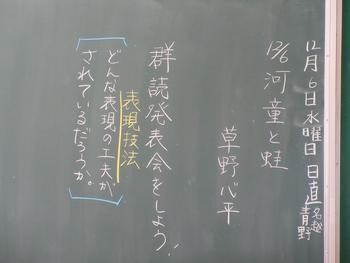 12月6日水曜日 日直 名越 青野
12/6 河童と蛙
草野心平
群読発表会をしよう!
表現技法
どんな表現の工夫が
されているだろうか。